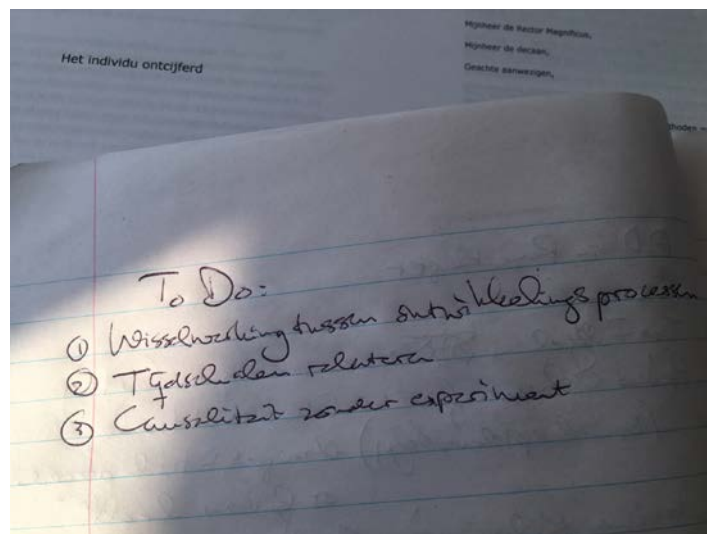 Het individu ontcijferd
Mijnheer de Rector Magnificus,
Mijnheer de decaan,
Geachte aanwezigen,
To Do:
① Wisselwerking tussen ontwikkelingsprocessen
② Tijdschalen relateren
③ Causaliteit zonder experiment